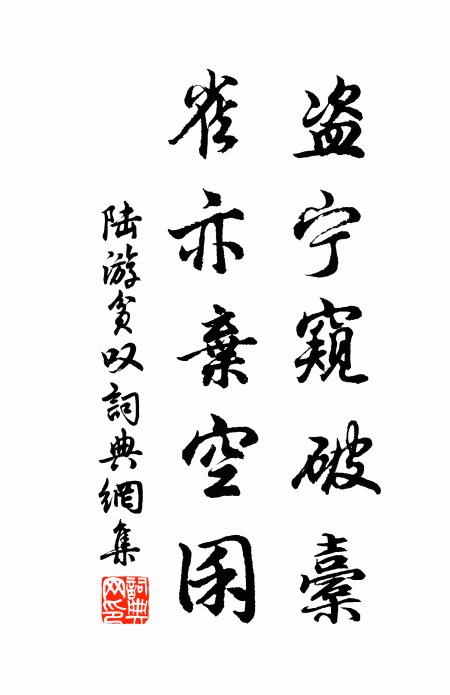 盗宁窺破橐
雀亦棄空囷
陆游贫叹詞典網集
詞典网印